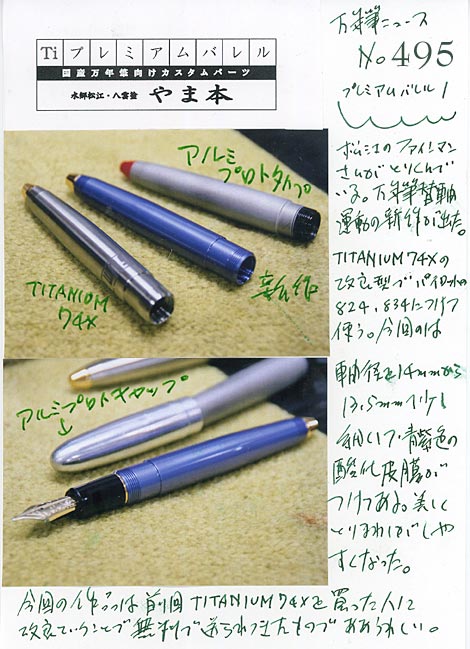 Ti プレミアムバレル
国産万年筆向けカスタムパーツ
水郷松江・八雲塗 やま本
万年筆ニュース
No 495
プレミアムバレル!
アルミ
プロトタイプ
TITANIUM
74X
新作
松江のファインマン
さんがとりくんで
いる。万年筆替軸
運動の新作が出た。
TITANIUM 74Xの
改良型でパイロットの
824, 834につけて
使う。今回のは
アルミプロトキャップ
↓
軸径を14mmから
13.5mmへ
細くして、青紫色の
酸化皮膜が
つけてある。美しく
とりまわしがしや
すくなった。
今回の作品は前回TITANIUM 74Xを買った人に
改良ということで無料で送られてきたものでああうれしい。